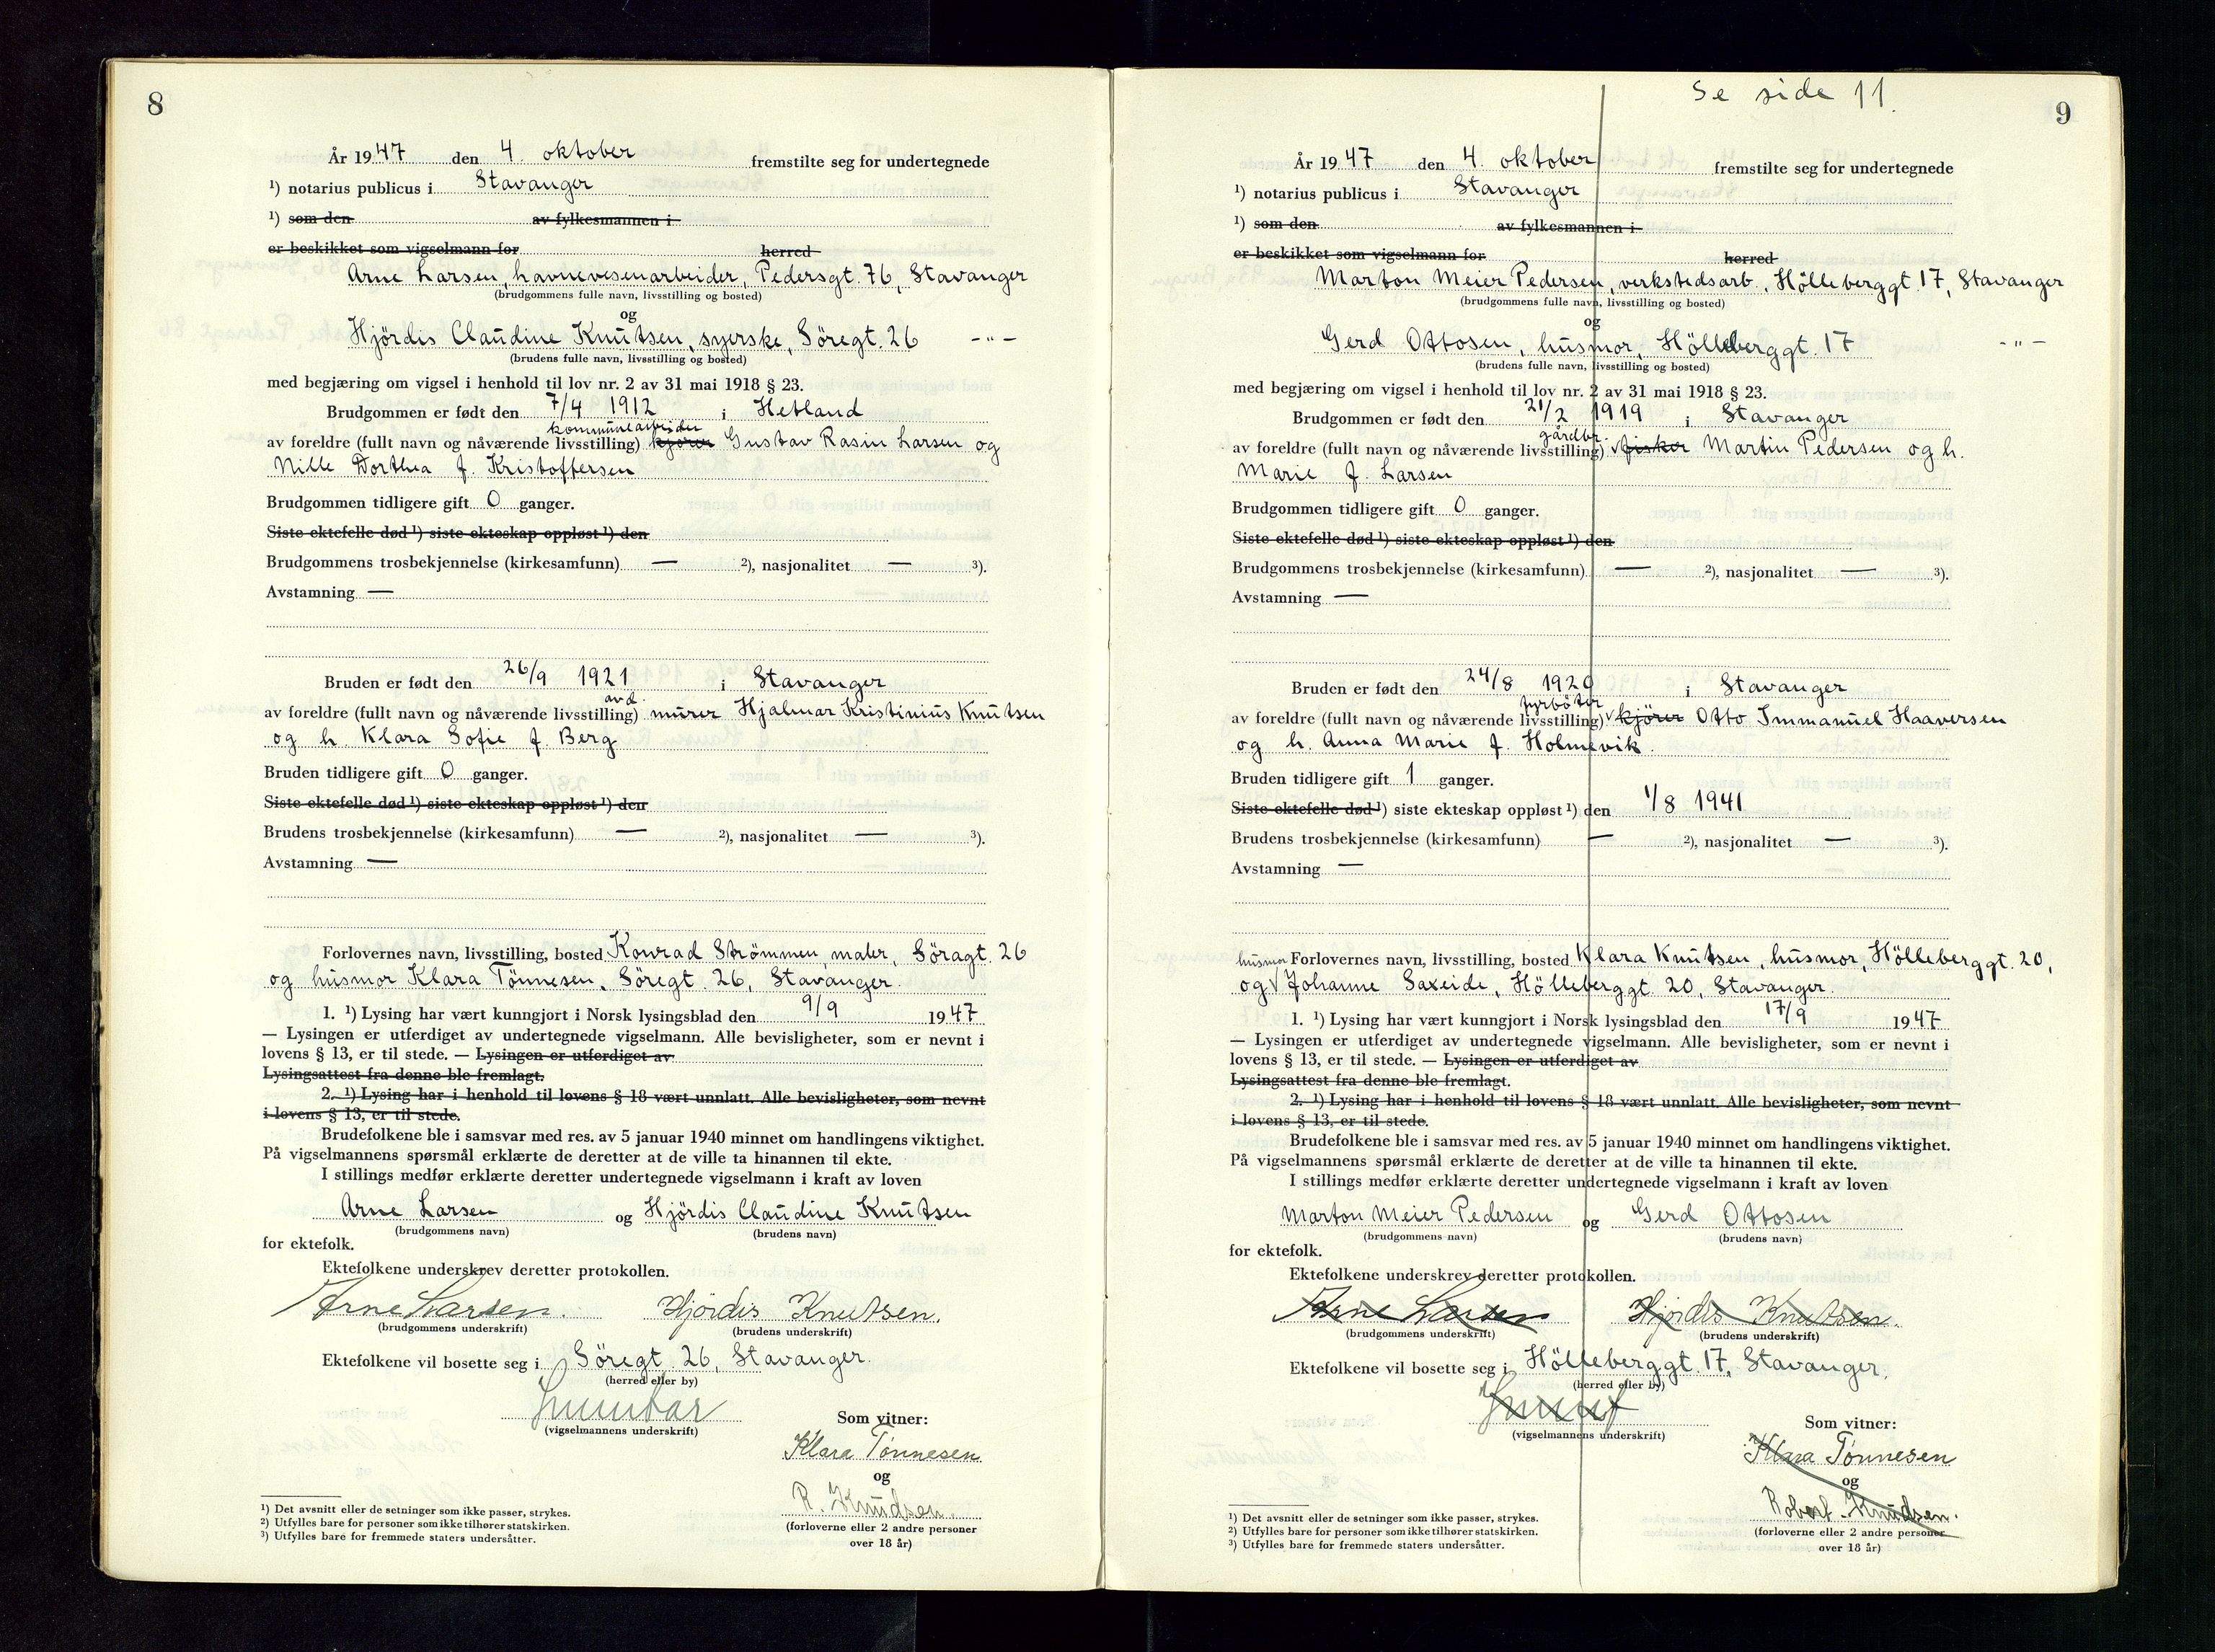 8
År 1947 den 4. oktober fremstilte seg for undertegnede
¹) notarius publicus i Stavanger
¹) som den av fylkesmannen i
er beskikket som vigselmann for herred
Arne Larsen, havnevesenarbeider, Pedersgt. 76, Stavanger
(brudgommens fulle navn, livsstilling og bosted)
og
Hjördis Claudine Knutsen, syerske, Söregt. 26 -"-
(brudens fulle navn, livsstilling og bosted)
med begjæring om vigsel i henhold til lov nr. 2 av 31 mai 1918 § 23.
Brudgommen er født den 7/4 1912 i Hetland
kommunearbeider
av foreldre (fullt navn og nåværende livsstilling) kjører Gustav Rasin Larsen og
Nille Dorthea f. Kristoffersen
Brudgommen tidligere gift 0 ganger.
Siste ektefelle død ¹) siste ekteskap oppløst ¹) den
Brudgommens trosbekjennelse (kirkesamfunn) — ²), nasjonalitet — ³).
Avstamning —
Bruden er født den 26/9 1921 i Stavanger
avd.
av foreldre (fullt navn og nåværende livsstilling) murer Hjalmar Kristinius Knutsen
og h. Klara Sofie f. Berg
Bruden tidligere gift 0 ganger.
Siste ektefelle død ¹) siste ekteskap oppløst ¹) den
Brudens trosbekjennelse (kirkesamfunn) — ²), nasjonalitet — ³).
Avstamning —
Forlovernes navn, livsstilling, bosted Konrad Strömmen, maler, Söragt. 26
og husmor Klara Tönnesen, Söregt. 26, Stavanger.
1. ¹) Lysing har vært kunngjort i Norsk lysingsblad den 9/9 1947
— Lysingen er utferdiget av undertegnede vigselmann. Alle bevisligheter, som er nevnt i
lovens § 13, er til stede. — Lysingen er utferdiget av
Lysingsattest fra denne ble fremlagt.
2. ¹) Lysing har i henhold til lovens § 18 vært unnlatt. Alle bevisligheter, som nevnt
i lovens § 13, er til stede.
Brudefolkene ble i samsvar med res. av 5 januar 1940 minnet om handlingens viktighet.
På vigselmannens spørsmål erklærte de deretter at de ville ta hinannen til ekte.
I stillings medfør erklærte deretter undertegnede vigselmann i kraft av loven
Arne Larsen og Hjördis Claudine Knutsen
(brudgommens navn) (brudens navn)
for ektefolk.
Ektefolkene underskrev deretter protokollen.
Arne Larsen. Hjördis Knutsen.
(brudgommens underskrift) (brudens underskrift)
Ektefolkene vil bosette seg i Söregt. 26, Stavanger.
(herred eller by)
(vigselmannens underskrift)
Som vitner:
Klara Tönnesen
og
R. Knudsen.
(forloverne eller 2 andre personer
over 18 år)
¹) Det avsnitt eller de setninger som ikke passer, strykes.
²) Utfylles bare for personer som ikke tilhører statskirken.
³) Utfylles bare for fremmede staters undersåtter.
Se side 11.
9
År 1947 den 4. oktober fremstilte seg for undertegnede
¹) notarius publicus i Stavanger
¹) som den av fylkesmannen i
er beskikket som vigselmann for herred
Marton Meier Pedersen, verkstedsarb., Hölleberggt. 17, Stavanger
(brudgommens fulle navn, livsstilling og bosted)
og
Gerd Ottosen, husmor, Hölleberggt. 17 -"-
(brudens fulle navn, livsstilling og bosted)
med begjæring om vigsel i henhold til lov nr. 2 av 31 mai 1918 § 23.
Brudgommen er født den 21/2 1919 i Stavanger
gårdbr.
av foreldre (fullt navn og nåværende livsstilling) fisker Martin Pedersen og h.
Marie f. Larsen
Brudgommen tidligere gift 0 ganger.
Siste ektefelle død ¹) siste ekteskap oppløst ¹) den
Brudgommens trosbekjennelse (kirkesamfunn) — ²), nasjonalitet — ³).
Avstamning —
Bruden er født den 24/8 1920 i Stavanger
fyrböter
av foreldre (fullt navn og nåværende livsstilling) kjører Otto Immanuel Haaversen
og h. Anna Marie f. Holmevik.
Bruden tidligere gift 1 ganger.
Siste ektefelle død ¹) siste ekteskap oppløst ¹) den 1/8 1941
Brudens trosbekjennelse (kirkesamfunn) — ²), nasjonalitet — ³).
Avstamning —
Forlovernes navn, livsstilling, bosted Klara Knutsen, husmor, Hölleberggt. 20,
husmor
og Johanne Saxeide, Hölleberggt. 20, Stavanger.
1. ¹) Lysing har vært kunngjort i Norsk lysingsblad den 17/9 1947
— Lysingen er utferdiget av undertegnede vigselmann. Alle bevisligheter, som er nevnt i
lovens § 13, er til stede. — Lysingen er utferdiget av
Lysingsattest fra denne ble fremlagt.
2. ¹) Lysing har i henhold til lovens § 18 vært unnlatt. Alle bevisligheter, som nevnt
i lovens § 13, er til stede.
Brudefolkene ble i samsvar med res. av 5 januar 1940 minnet om handlingens viktighet.
På vigselmannens spørsmål erklærte de deretter at de ville ta hinannen til ekte.
I stillings medfør erklærte deretter undertegnede vigselmann i kraft av loven
Marton Meier Pedersen og Gerd Ottosen
(brudgommens navn) (brudens navn)
for ektefolk.
Ektefolkene underskrev deretter protokollen.
Arne Larsen Hjördis Knutsen.
(brudgommens underskrift) (brudens underskrift)
Ektefolkene vil bosette seg i Hölleberggt. 17, Stavanger.
(herred eller by)
(vigselmannens underskrift)
Som vitner:
Klara Tönnesen
og
Robert Knudsen.
(forloverne eller 2 andre personer
over 18 år)
¹) Det avsnitt eller de setninger som ikke passer, strykes.
²) Utfylles bare for personer som ikke tilhører statskirken.
³) Utfylles bare for fremmede staters undersåtter.